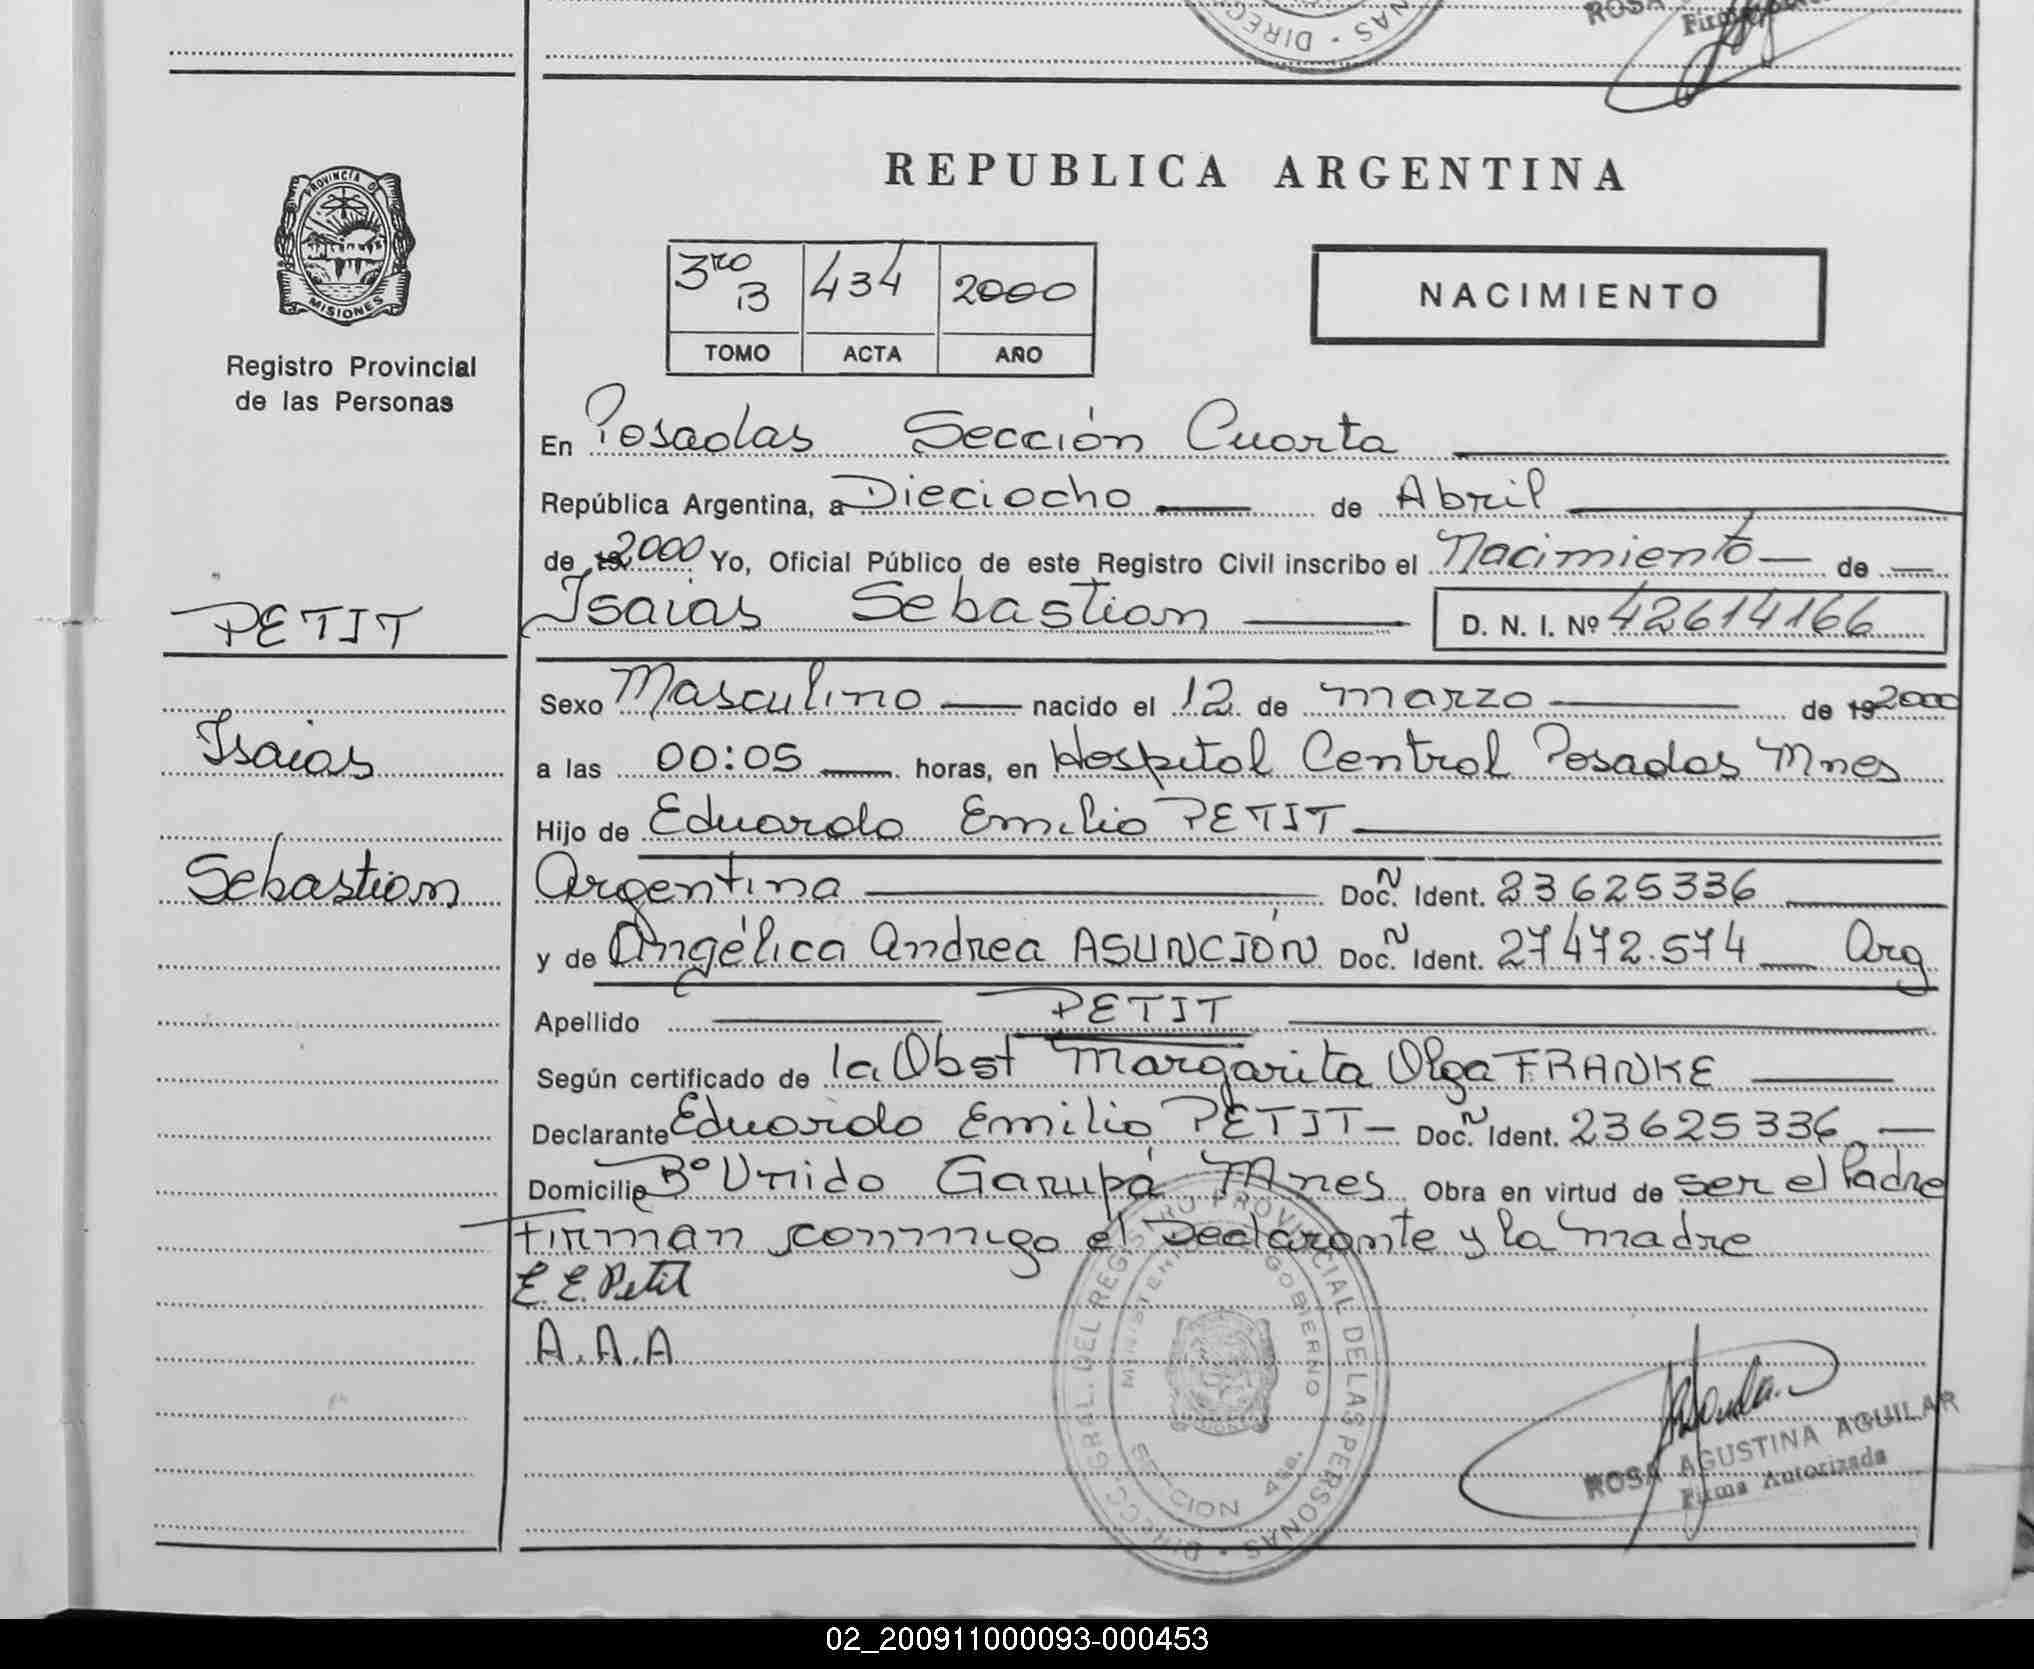 DIREC
NAS
ROSA
Firma
PROVINCIA D
MISIONES
Registro Provincial
de las Personas
REPUBLICA ARGENTINA
3ro B 434 2000
TOMO ACTA AÑO
NACIMIENTO
En Posadas Sección Cuarta
República Argentina, a Dieciocho de Abril
de 19 2000 Yo, Oficial Público de este Registro Civil inscribo el Nacimiento de
PETIT
Isaias Sebastian D. N. I. Nº 42614166
Sexo Masculino nacido el 12 de marzo de 19 2000
Isaias
a las 00:05 horas, en Hospital Central Posadas Mnes
Hijo de Eduardo Emilio PETIT
Sebastian
Argentina Doc. N Ident. 23625336
y de Angélica Andrea ASUNCIÓN Doc. N Ident. 27472.574 Arg
Apellido PETIT
Según certificado de la Obst Margarita Olga FRANKE
Declarante Eduardo Emilio PETIT Doc. N Ident. 23625336
Domicilio Bº Unido Garupá Mnes Obra en virtud de ser el Padre
Firman conmigo el Declarante y la madre
E. E. Petit
A. A. A
DIRECC. GRAL. DEL REGISTRO PROVINCIAL DE LAS PERSONAS
MINISTERIO GOBIERNO
SECCION 4ta.
ROSA AGUSTINA AGUILAR
Firma Autorizada
02_200911000093-000453